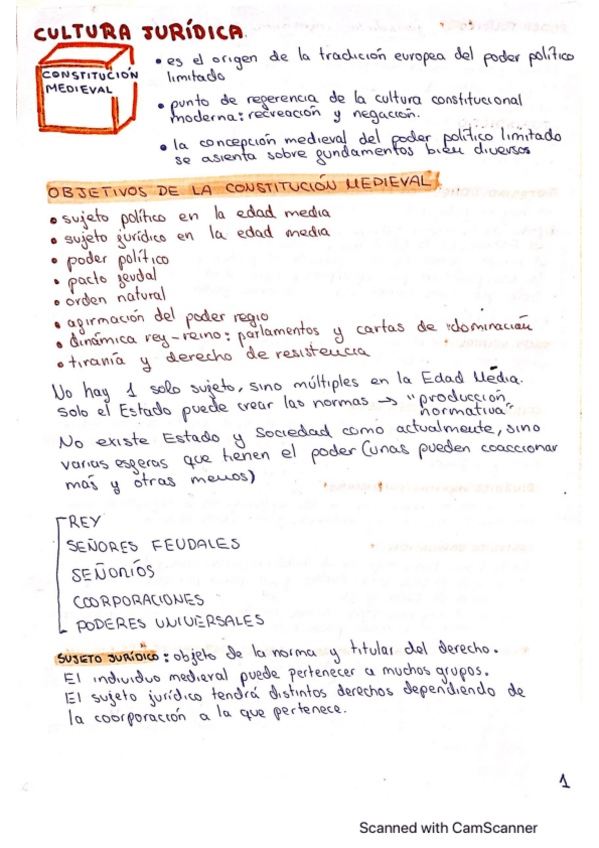 CULTURA JURÍDICA.
CONSTITUCIÓN
MEDIEVAL
• es el origen de la tradición europea del poder político
limitado
• punto de referencia de la cultura constitucional
moderna: recreación y negación.
• la concepción medieval del poder político limitado
se asienta sobre fundamentos bien diversos
OBJETIVOS DE LA CONSTITUCIÓN MEDIEVAL
• sujeto político en la edad media
• sujeto jurídico en la edad media
• poder político
• pacto feudal
• orden natural
• afirmación del poder regio
• dinámica rey-reino: parlamentos y cartas de dominación
• tiranía y derecho de resistencia
No hay 1 solo sujeto, sino múltiples en la Edad Media.
Solo el Estado puede crear las normas → "producción
normativa"
No existe Estado y Sociedad como actualmente, sino
varias esferas que tienen el poder (unas pueden coaccionar
más y otras menos)
REY
SEÑORES FEUDALES
SEÑORÍOS
COORPORACIONES
PODERES UNIVERSALES
SUJETO JURÍDICO: objeto de la norma y titular del derecho.
El individuo medieval puede pertenecer a muchos grupos.
El sujeto jurídico tendrá distintos derechos dependiendo de
la coorporación a la que pertenece.
1
Scanned with CamScanner